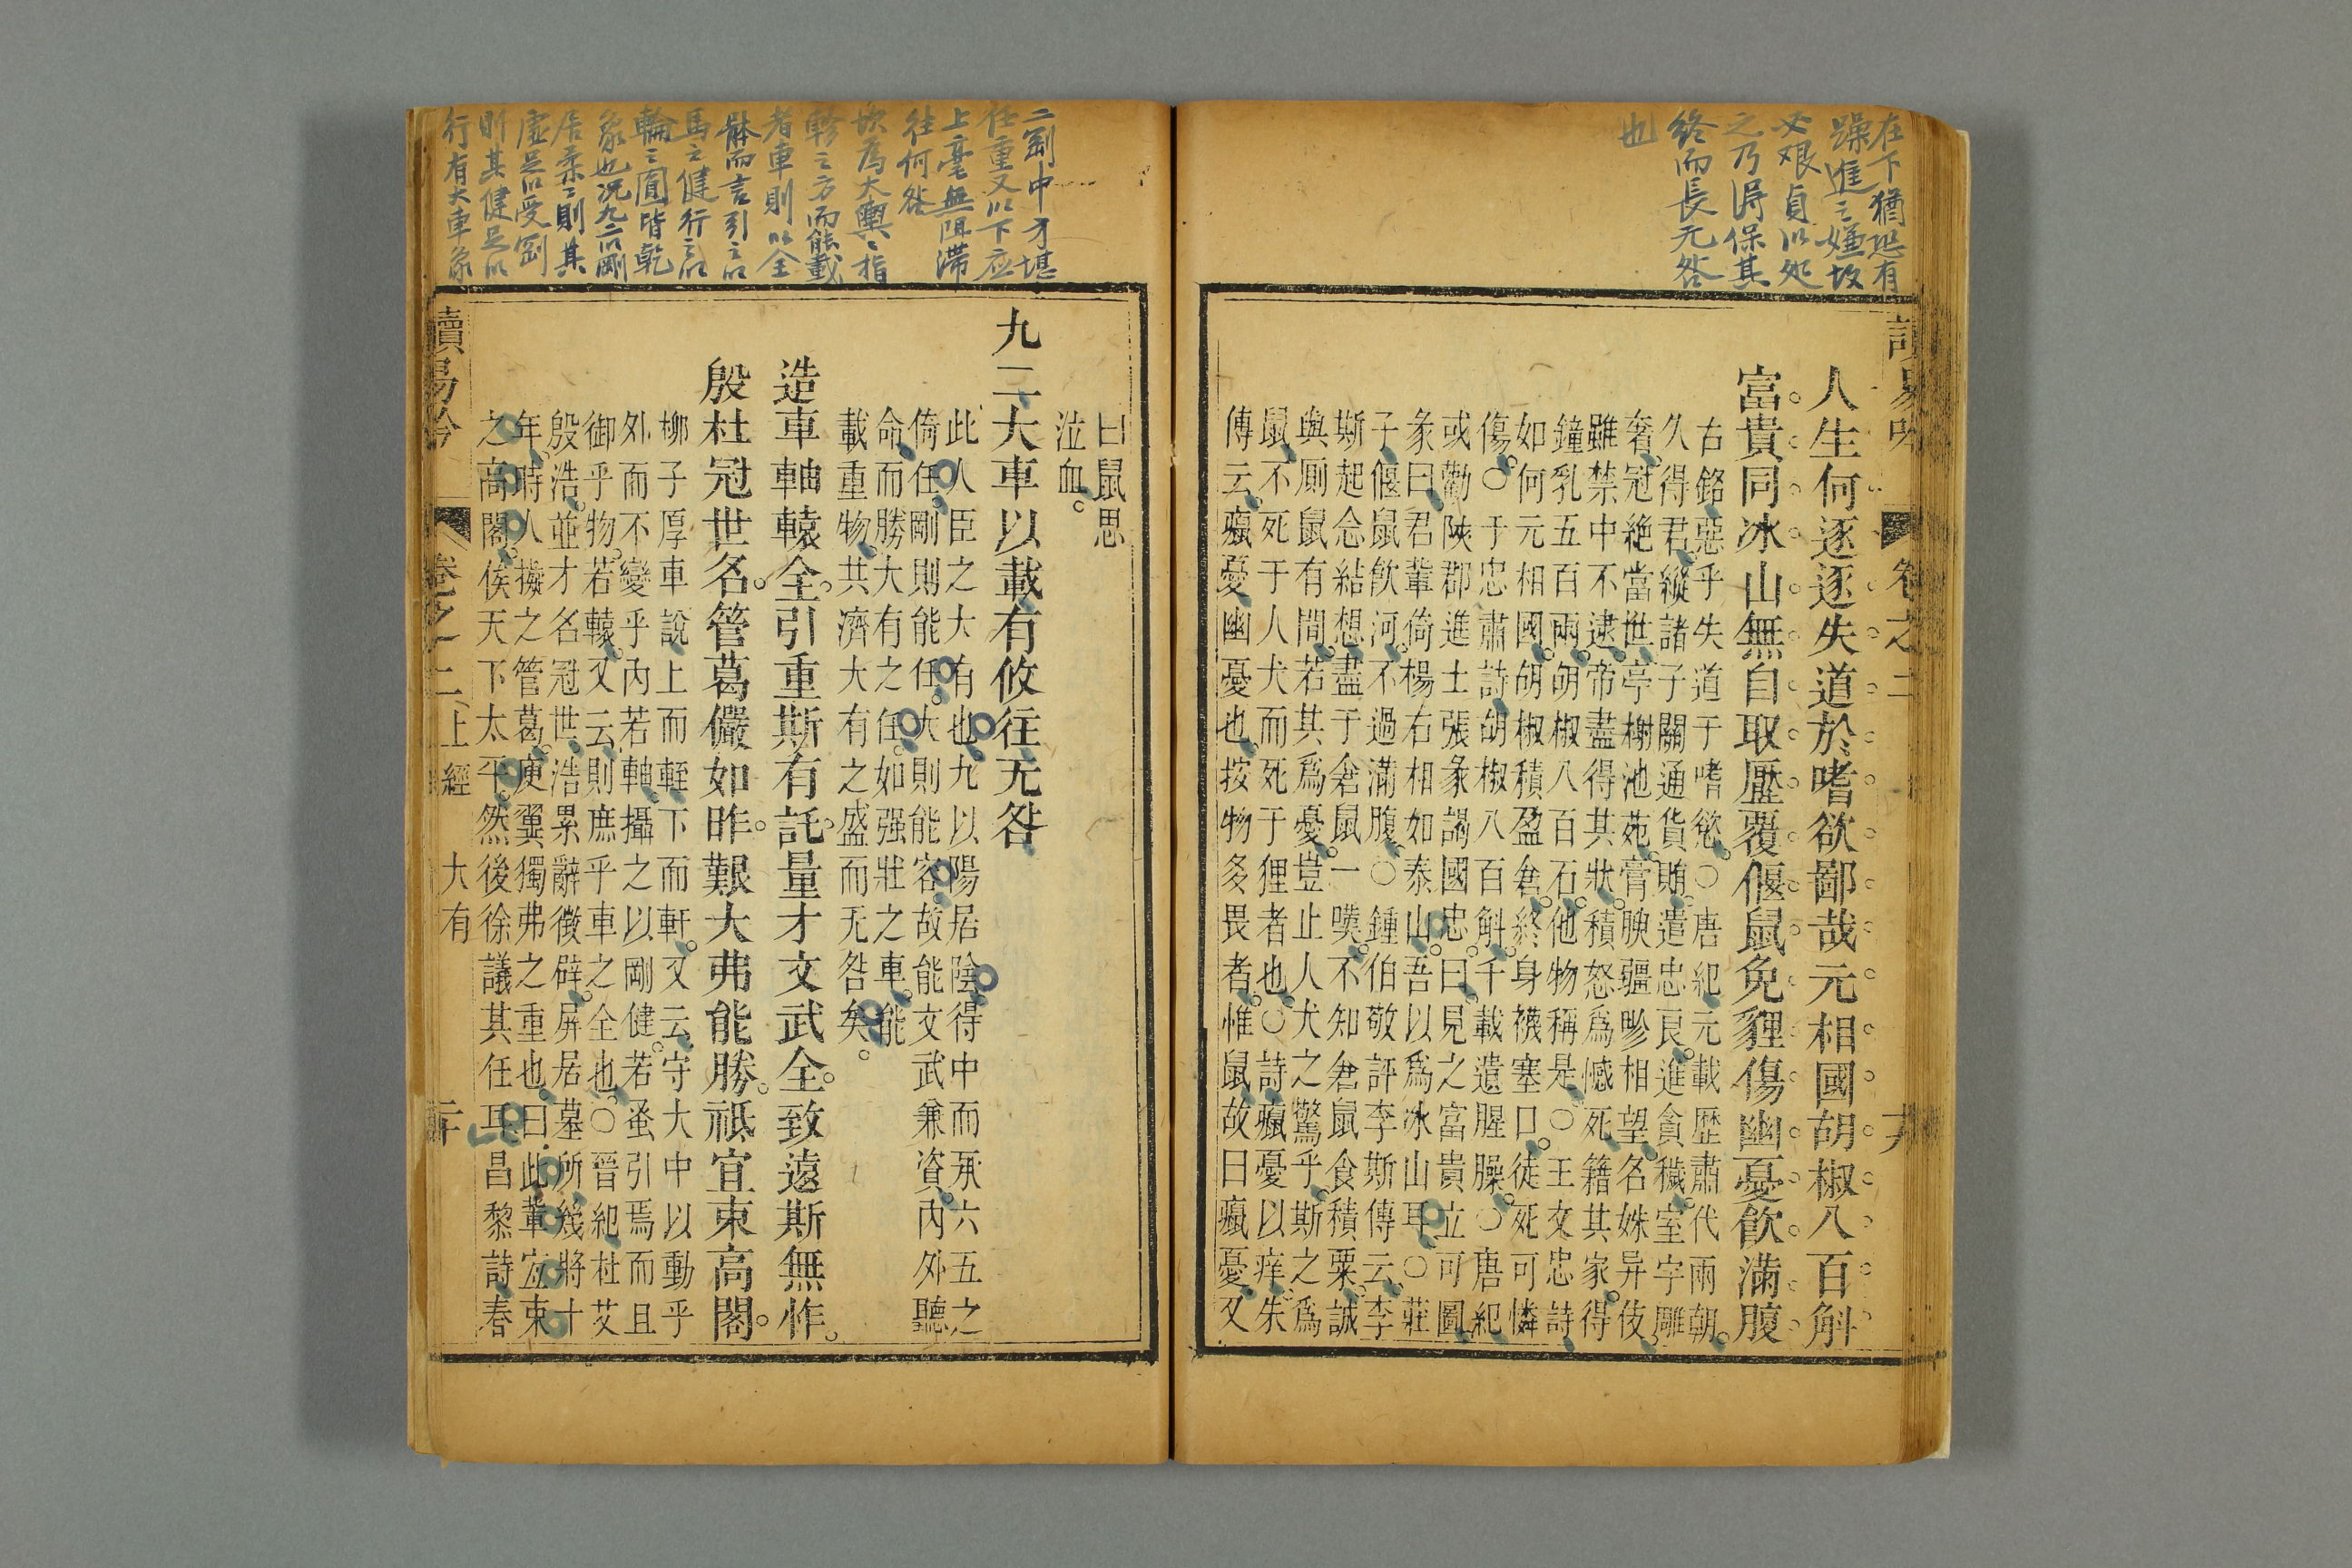 在下猶恐有
躁進之嫌故
必艱貞以処
之乃得保其
終而長无咎
也
讀易吟
卷之二
人生何逐逐失道於嗜欲鄙哉元相國胡椒八百斛
富貴同冰山無自取壓覆偃鼠免貍傷幽憂飲滿腹
右銘惡乎失道于嗜慾○唐紀元載歷肅代兩朝
久得君縱諸子關通貨賄遣忠良進貪穢室宇雕
奢冠絕當世亭榭池苑膏腴疆畛相望名姝异伎
雖禁中不逮帝盡得其狀積怒爲憾死籍其家得
鐘乳五百兩胡椒八百石他物稱是○王文忠詩
如何元相國胡椒積盈倉終身襪塞口徒死可憐
傷○于忠肅詩胡椒八百斛千載遺腥臊○唐紀
或勸陝郡進士張彖謁國忠曰見之富貴立可圖
彖曰君輩倚楊右相如泰山吾以爲冰山耳○莊
子偃鼠飲河不過滿腹○鍾伯敬評李斯傳云李
斯起念結想盡于倉鼠一嘆不知倉鼠食積粟誠
與厠鼠有間若其爲憂豈止人犬之驚乎斯之爲
鼠不死于人犬而死于狸者也○詩癙憂以痒朱
傳云癙憂幽憂也按物多畏者惟鼠故曰癙憂又
曰鼠思
泣血
九二大車以載有攸往无咎
此人臣之大有也九以陽居陰得中而承六五之
倚任剛則能任大則能容故能文武兼資內外聽
命而勝大有之任如强壯之車能
載重物共濟大有之盛而无咎矣
造車軸轅全引重斯有託量才文武全致遠斯無怍
殷杜冠世名管葛儼如昨艱大弗能勝祇宜束高閣
柳子厚車說上而輊下而軒又云守大中以動乎
外而不變乎內若軸攝之以剛健若蚤引焉而且
御乎物若轅又云則庶乎車之全也○晉紀杜乂
殷浩並才名冠世浩累辭徵辟屏居墓所幾將十
年時人擬之管葛庾翼獨弗之重也曰此輩宜束
之高閣俟天下太平然後徐議其任耳昌黎詩春
讀易吟
卷之二
上經
大有
二剛中才堪
任重又以下应
上毫無阻滯
往何咎
坎爲大輿輿指
軫之方而能載
者車則以全
體而言引之以
馬之健行之以
輪之圓皆乾
象也況九二以剛
居柔柔則其
虛足以受剛
則其健足以
行有大車象